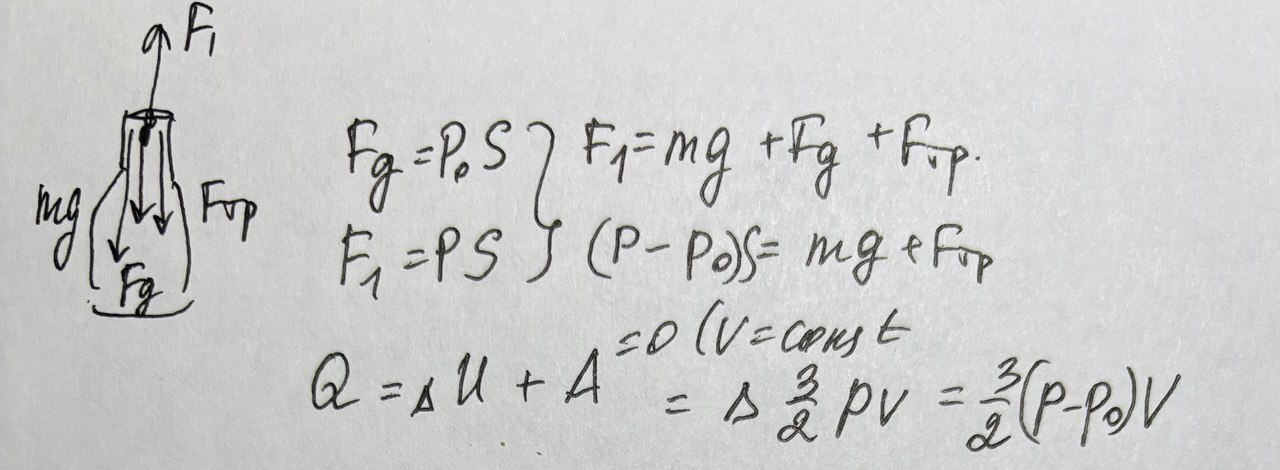 F₁
mg
Fтр
Fg
Fg = P₀S } F₁ = mg + Fg + Fтр.
F₁ = PS } (P - P₀)S = mg + Fтр
Q = ΔU + A = 0 (V = const
= Δ 3/2 pV = 3/2 (p - p₀)V